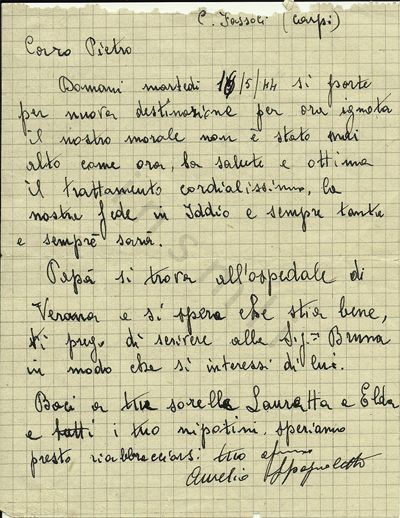 C. Fassoli (Carpi)
Carro Pietro
Domani martedi 16/5/44 si parte
per nuova destinazione per ora ignota
il nostro morale non è stato mai
alto come ora, la salute e ottima
il trattamento cordialissimo, la
nostra fede in Iddio e sempre tanta
e sempre sarà.
Papà si trova all'ospedale di
Verona e si spera che stia bene,
ti prego di scrivere alla Sig.na Bruna
in modo che si interessi di lui.
Baci a tue sorelle Lauretta e Elda
e tutti i tuo nipotini, speriamo
presto riabbracciarsi tuo
Aurelio Spagnoletto